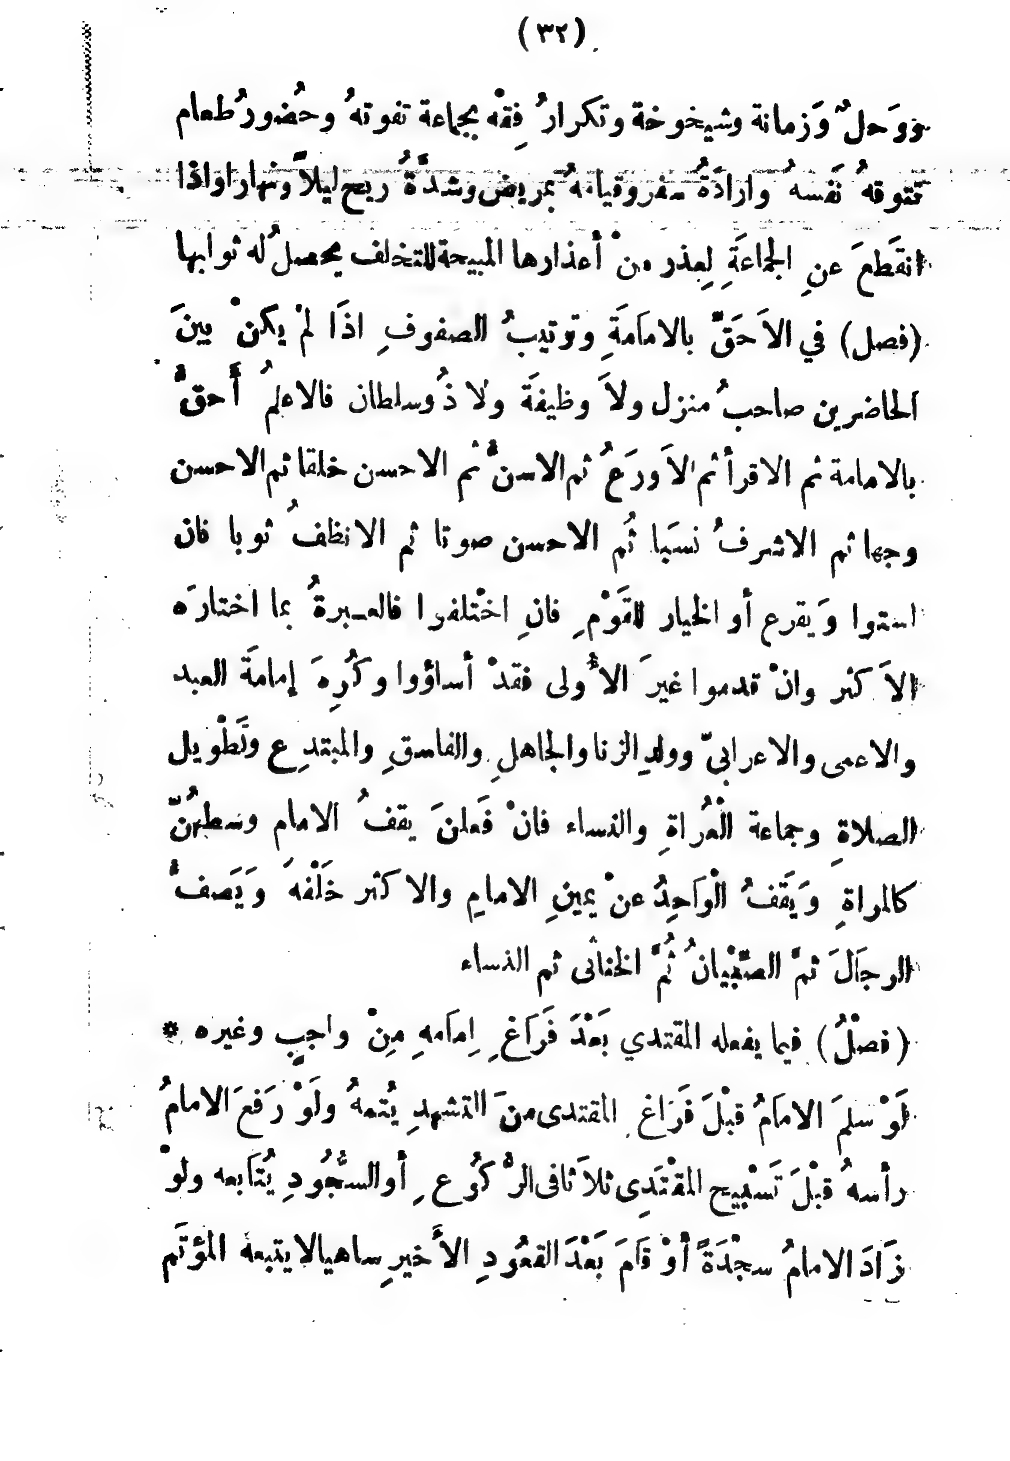 (٣٢)
ووَحلٌ وَزمانة وشيخوخة وتكرارُ فِقْه بجماعة تفوتهُ وحُضورُ طعام
تتوقهُ نَفسهُ وارادَةُ سفر وقيامهُ بمريض وشدَّةُ ريح ليلاً ونهارا واذا
انقَطعَ عنِ الجماعَةِ لِعِذر منْ أعذارها المبيحة للتخلف يحصلُ له ثوابها
(فصل) في الاَحَقِّ بالامامَةِ وتوتيبُ الصفوفِ اذَا لمْ يكنْ بينَ
الحاضرين صاحبُ منزل ولاَ وظيفَة ولا ذُوسلطان فالاعلمُ أَحقُّ
بالامامة ثم الاقرأ ثم الاَورَعُ ثم الاسنُّ ثم الاحسن خلقا ثم الاحسن
وجها ثم الاشرفُ نسَبا ثُم الاحسن صوتا ثم الانظفُ ثوبا فان
استووا وَيقرع أو الخيار للقَوْمِ فانِ اختْلفوا فالعـبرةُ بما اختارَه
الاَكثر وانْ قدموا غيرَ الأَولى فقدْ أساؤوا وكُرِهَ إمامَة العبد
والاعمى والاعرابيّ وولدِ الزنا والجاهلِ والفاسقِ والمبتدِع وتَطْويل
الصلاةِ وجماعة الْعُراةِ والنساء فانْ فَعلنَ يقفُ الامام وسطهُنّ
كالعراةِ وَيَقَفُ الْوَاحِدُ عنْ يمينِ الامامِ والاكثر خَلْفهَ وَيَصفُّ
الرجَالَ ثمَّ الصِّبْيانُ ثُمَّ الخناثى ثم النساء
(فصْلُ) فيما يفعله المقتدي بَعْدَ فَرَاغِ اِمامهِ مِنْ واجبٍ وغيره *
لَوْ سلمَ الامامُ قبْلَ فَرَاغِ المقتدى منَ التشهدِ يُتمهُ ولَوْ رَفعَ الامامُ
رأسهُ قبْلَ تَسْبيح المقْتَدِى ثلاَثا فى الرُّكُوعِ أو السُّجُودِ يُتابعه ولوْ
زَادَ الامامُ سجْدَةً أوْ قَامَ بَعْدَ القعُودِ الأَخيرِ ساهيا لا يتبعهُ المؤتَم